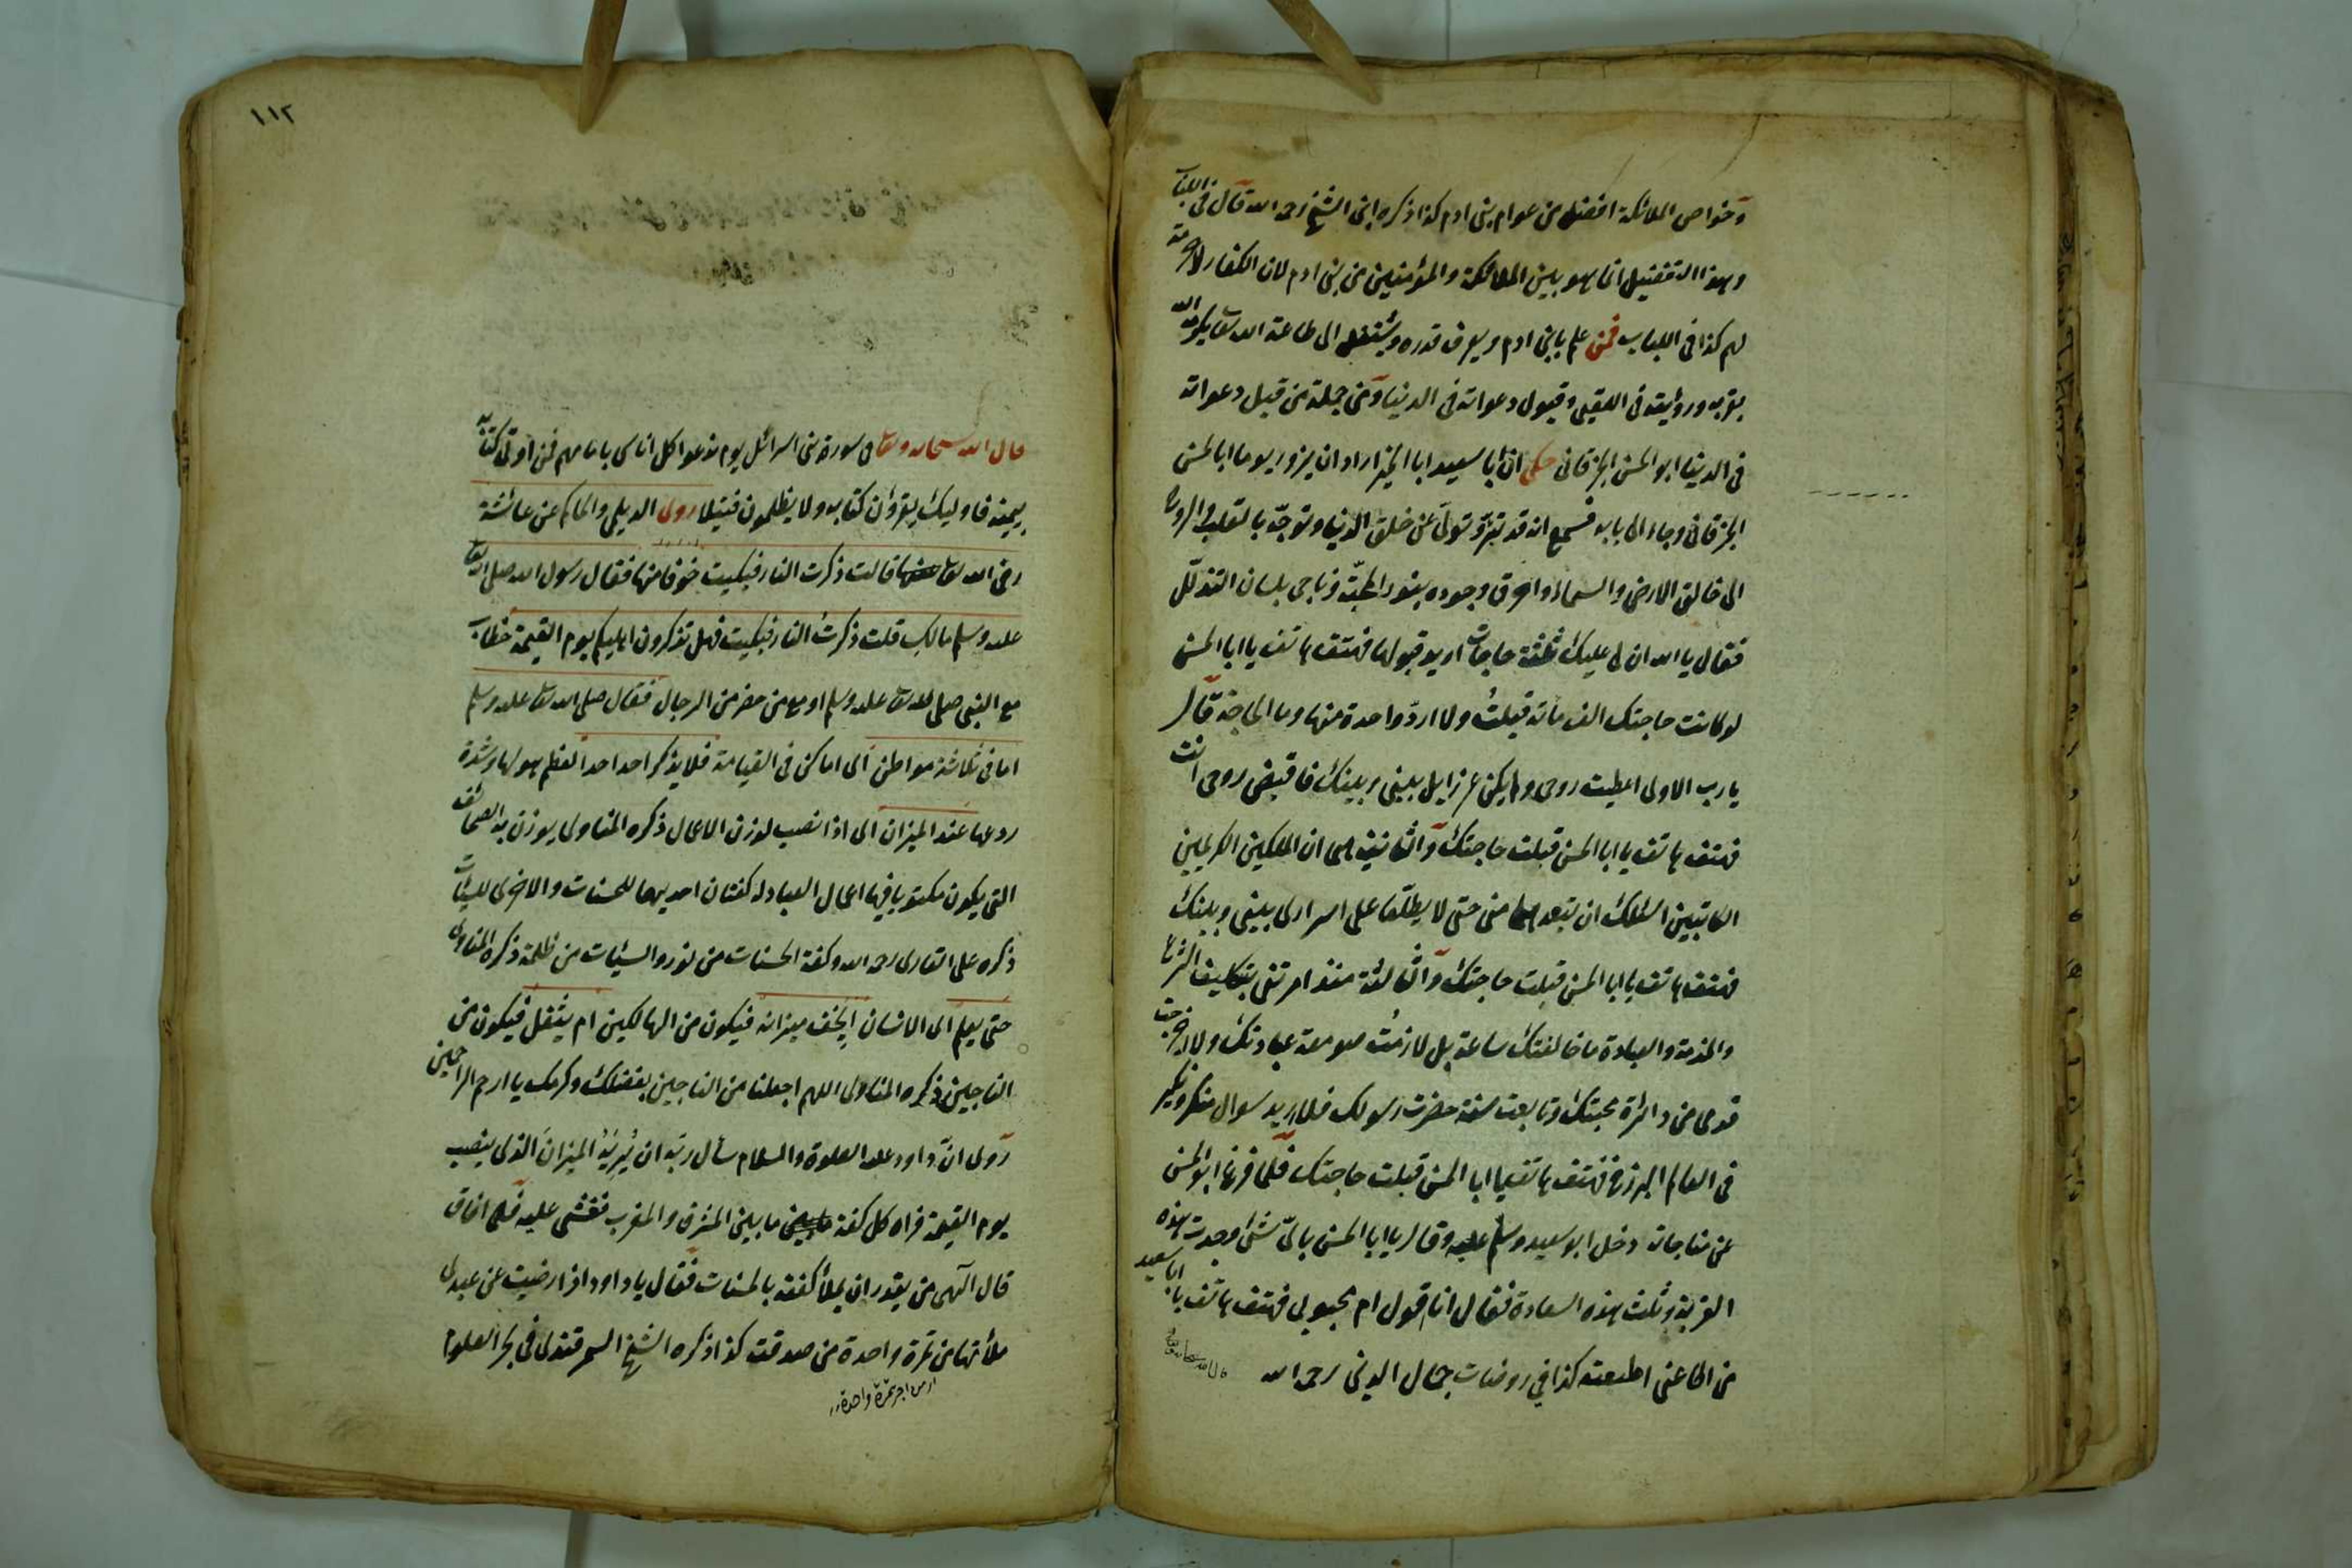 وخواص الملائكة افضل من عوام بنى ادم كذا ذكره ابن الشيخ رحمه الله قال فى اللباب
وهذا التفضيل انما هو بين الملائكة والمؤمنين من بنى ادم لان الكفار لا حرمة
لهم كذا فى اللباب فمن علم يا بنى ادم ويعرف قدره ويشتغل الى طاعة الله تعا يكرمه الله
بقربه ورؤيته فى العقبى وقبول دعواته فى الدنيا ومن جملة من قبل دعواته
فى الدينا ابو الحسن الخرقانى حكى ان ابا سعيد ابا الخير اراد ان يزور يوما ابا الحسن
الخرقانى وجاء الى بابه فسمع انه قد تبرّء وتولّى عن خلق الدنيا وتوجّه بالقلب والروح
الى خالق الارض والسماء واحرق وجوده بنور المحبّة وناجى بلسان التذلّل
فقال يا الله ان لى عليك ثلثة حاجات اريد قبولها فهتف هاتف يا ابا الحسن
لو كانت حاجتك الف مأته قبلتُ ولا اردّ واحدة منها وما الحاجة قال
يا رب الاولى اعطيت روحى ولم يكن عزرايل بينى وبينك فاقبض روحى انت
فهتف هاتف يا ابا الحسن قبلت حاجتك والثانية ان الملكين الكريمين
الكاتبين اسئلك ان تبعد منى حتى لا يطلعا على اسرارى بينى وبينك
فهتف هاتف يا ابا الحسن قبلت حاجتك والثالثة منذ امرتنى بتكليف الشرع
والخدمة والعبادة ما خالفتك ساعة بل لازمتُ صومعة عبادتك ولا اخرجت
قدمى من دائرة محبتك وتابعت سنة حضرت رسولك فلا اريد سوال منكر ونكير
فى العالم البرزخ فهتف هاتف يا ابا الحسن قبلت حاجتك فلما فرغ ابو الحسن
عن مناجاته دخل ابو سعيد وسلم عليه وقال يا ابا الحسن باىّ شئ وجدت هذه
القربة ونلت بهذه السعادة فقال انا قول ام محبوبى فهتف هاتف يا ابا سعيد
من اطاعنى اطعته كذا في روضات جمال الدين رحمه الله
قال الله سبحانه وتعا
١١٢
قال الله سبحانه وتعا فى سورة بنى اسرائل يوم ندعوا كل اناس بامامهم فمن اوتى كتابه
بيمينه فاوليك يقرؤن كتابه ولا يظلمون فتيلا روى الديلمى والحاكم عن عائشة
رضى الله تعا عنها قالت ذكرت النار فبكيت خوفا منها فقال رسول الله صلى الله تعا
عليه وسلم مالك قلت ذكرتُ النار فبكيت فهل تذكرون اهليكم يوم القيمة خطاب
مع النبى صلى الله تعا عليه وسلم او مع من حضر من الرجال فقال صلى الله تعا عليه وسلم
اما فى ثلاثة مواطن اى اماكن فى القيامة فلا يذكر احد احدا لعظم هولها وشدة
روعها عند الميزان اى اذا نصب لوزن الاعمال ذكره المناوى يوزن به الصحائف
التى يكون مكتوبا فيها اعمال العباد له كفتان احديهما للحسنات والاخرى للسيئات
ذكره على القارى رحمه الله وكفة الحسنات من نور والسيئات من ظلمة ذكره المناوى
حتى يعلم اى الانسان ايخف ميزانه فيكون من الهالكين ام يثقل فيكون من
الناجين ذكره المناوى اللهم اجعلنا من الناجين بفضلك وكرمك يا ارحم الراحمين
روى انّ داود عليه الصلوة والسلام سأل ربّه ان يُرِيَهُ الميزان الذى ينصب
يوم القيمة فراه كل كفة ما بين المشرق والمغرب فغشى عليه فلما افاق
قال الهى من يقدر ان يملأ كفته بالحسنات فقال يا داود اذا رضيت عن عبدى
ملأتها من تمرة واحدة من صدقته كذا ذكره الشيخ السمرقندى فى بحر العلوم
ار من اجر تمرة واحدة